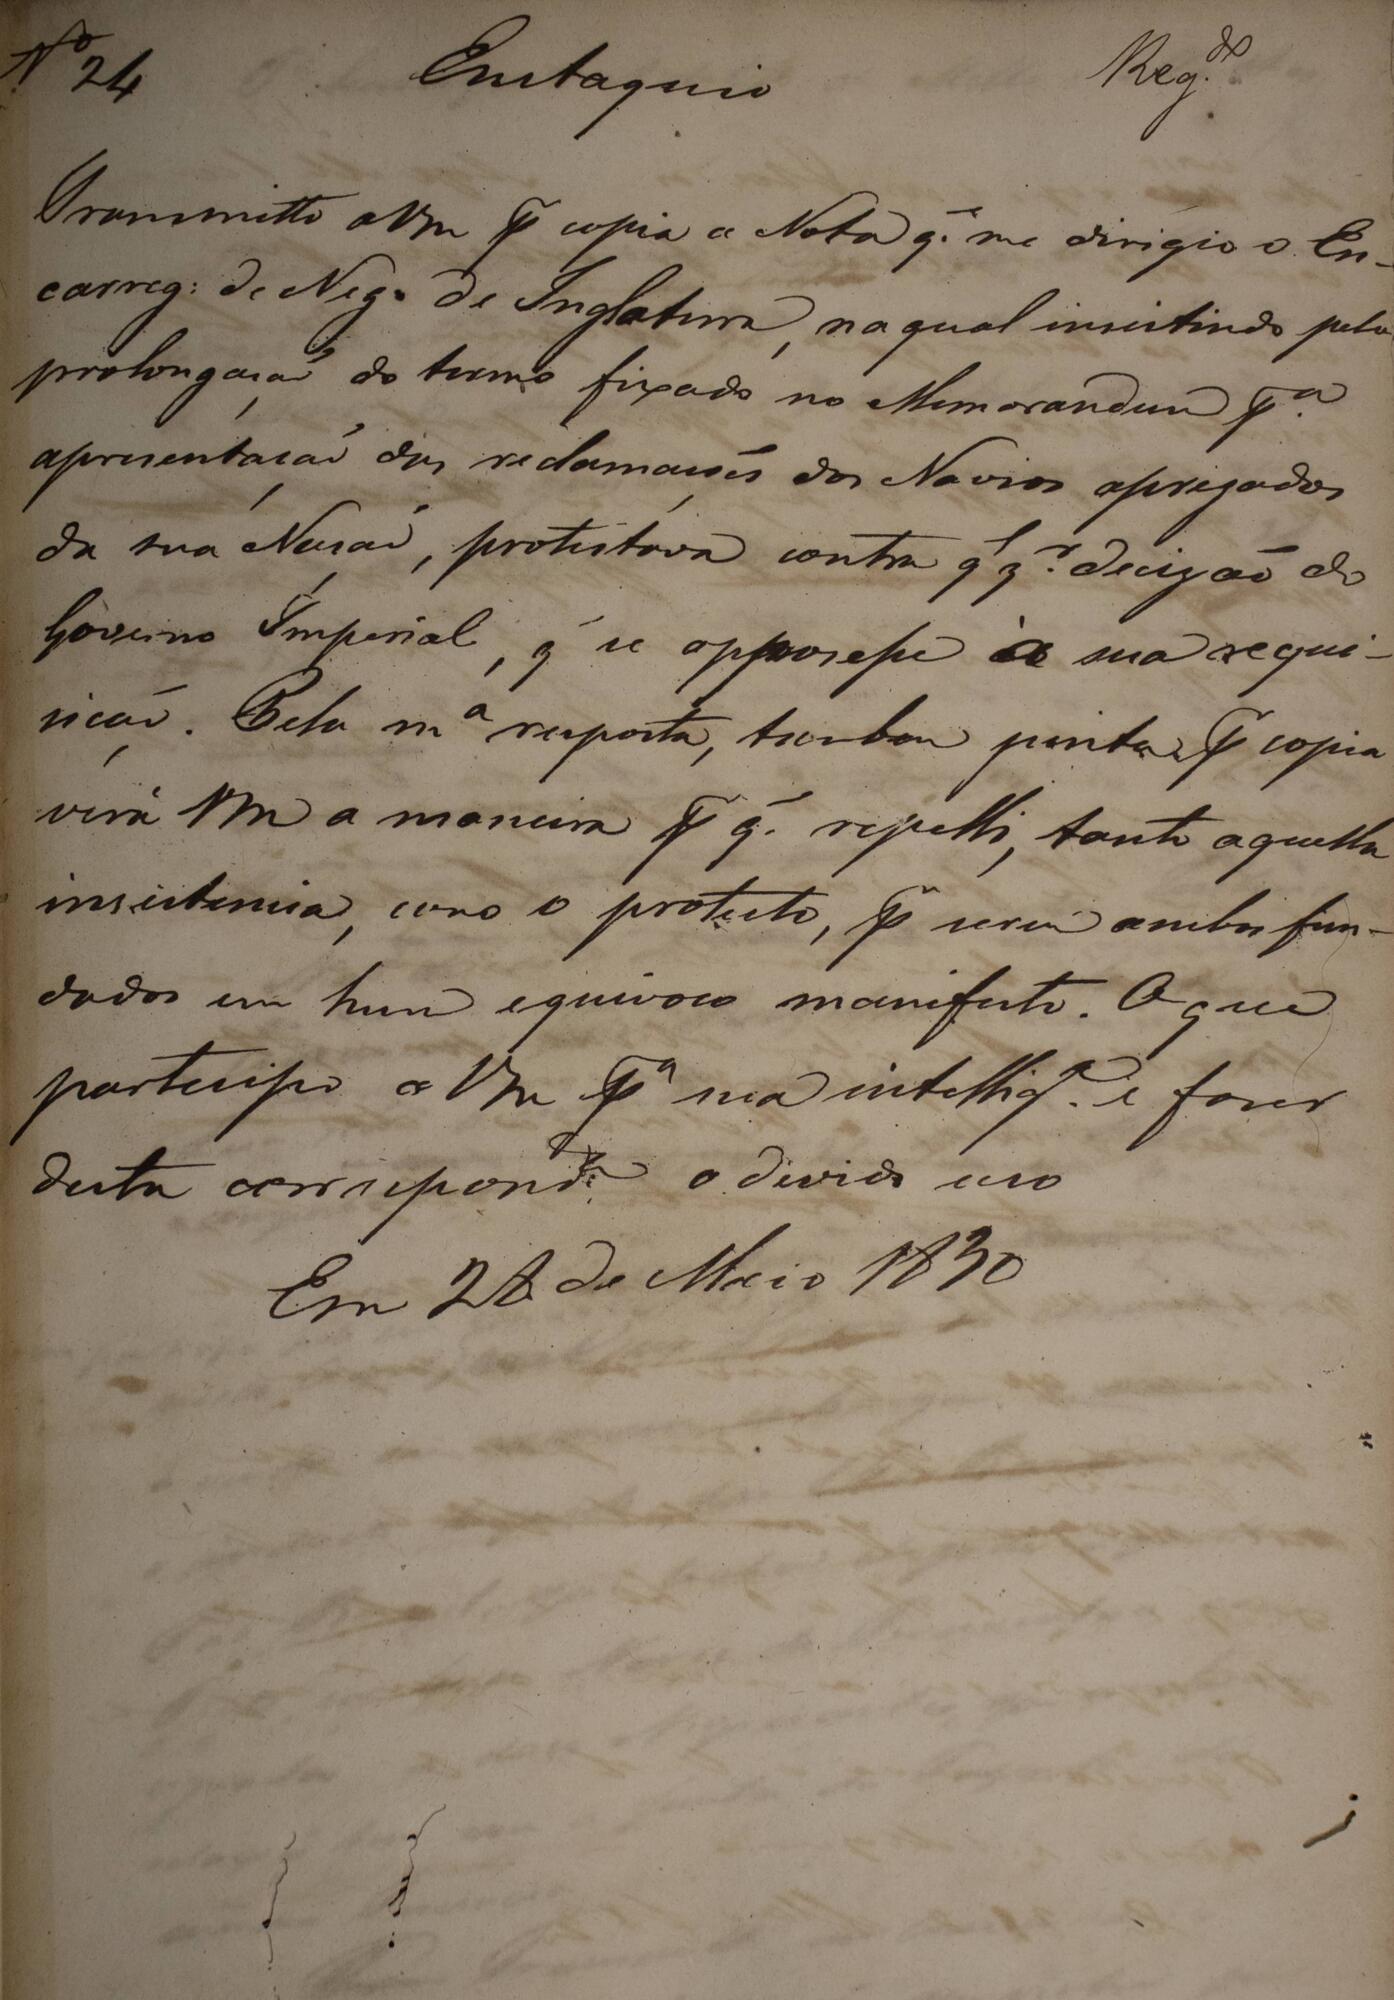 Nº 24 Eustaquio Reg.do
Transmitto a Vm p copia a Nota q. me dirigio o En-
carreg: de Neg.s de Inglaterra, na qual insistindo pela
prolongação do termo fixado no Memorandum p.a
apresentação das reclamações dos Navios aprezados
da sua Nação, protestava contra qlqr. decizão do
Governo Imperial, q se opposesse à sua requi-
sição. Pela m.a resposta, tambem junta p copia
verá Vm a maneira p q. repelli, tanto aquella
insistencia, como o protesto, p serem ambos fun-
dados em hum equivoco manifesto. O que
participo a Vm p.a sua intellig.a e fazer
desta correspond.a o devido uso
Em 28 de Maio 1830